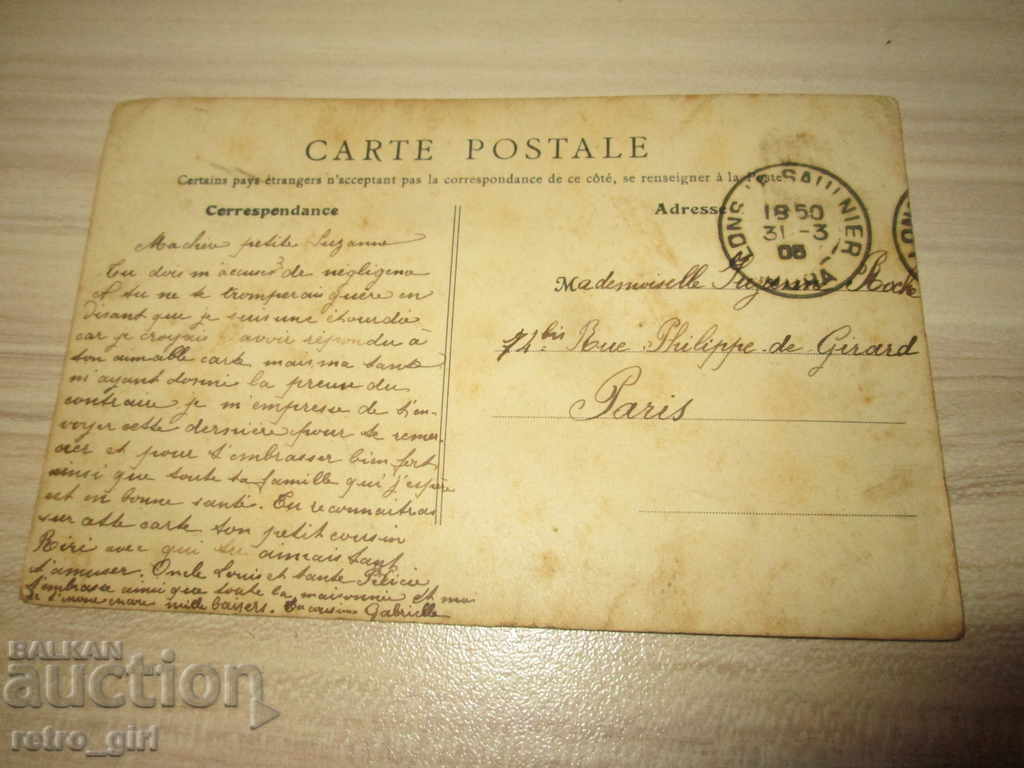 CARTE POSTALE
Certains pays étrangers n'acceptant pas la correspondance de ce côté, se renseigner à la Poste
Correspondance
Ma petite Suzanne
Tu dois m'accuser de négligence
et tu ne te tromperais guère en
disant que je suis une étourdie
car je croyais avoir répondu à
ton aimable carte mais ma tante
m'ayant donné la preuve du
contraire je m'empresse de t'en-
voyer cette dernière pour te remer-
cier et pour t'embrasser bien fort
ainsi que toute ta famille qui j'espère
est en bonne santé. Tu reconnaitras
sur cette carte ton petit cousin
Riri avec qui tu aimais tant
t'amuser. Oncle Louis et tante Félicie
t'embrasse ainsi que toute la maisonnée et moi
je t'envoie mille baisers. Ta cousine Gabrielle
Adresse
LONS-LE-SAUNIER
1850
31-3
06
JURA
Mademoiselle Suzanne Roche
74 bis Rue Philippe de Girard
Paris
BALKAN
auction
retro_girl